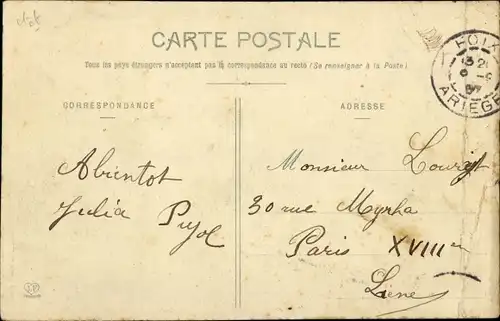 CARTE POSTALE
Tous les pays étrangers n'acceptent pas la correspondance au recto (Se renseigner à la Poste)
CORRESPONDANCE
Abientot
Julia Pujol
ADRESSE
Monsieur
30 rue Myrha
Paris XVIII
FOIX
ARIEGE